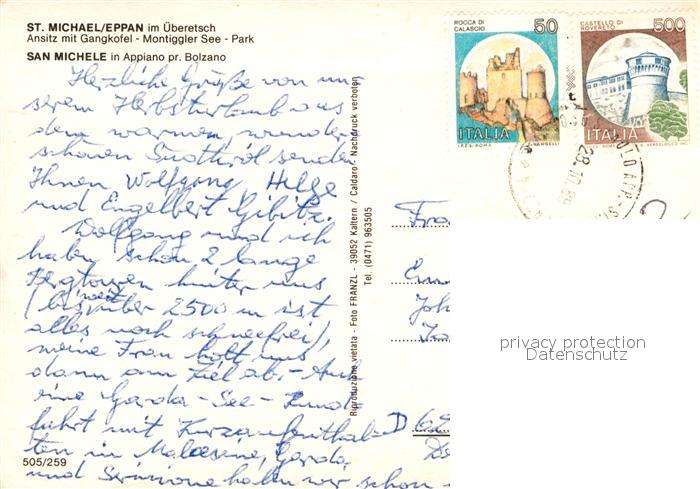 ST. MICHAEL/EPPAN im Überetsch
Ansitz mit Gangkofel - Montiggler See - Park
SAN MICHELE in Appiano pr. Bolzano
Herzliche Grüße von un-
serem Herbsturlaub aus
dem warmen, wunder-
schönen Südtirol senden
Ihnen Wolfgang, Helge
und Engelbert
Wolfgang und ich
haben schon 2 lange
Bergtouren hinter uns
(bis weit über 2500 m ist
alles noch schneefrei),
meine Frau holt uns
dann am Ziel ab. - Auch
eine Garda-See-Rund
fahrt mit Kurzaufenthal-
ten in Malcesine, Garda
und Sirmione haben wir schon
505/259
Riproduzione vietata - Foto FRANZL - 39052 Kaltern / Caldaro - Nachdruck verboten
Tel. (0471) 963505
ROCCA DI CALASCIO
50
ITALIA
I.P.Z.S. ROMA
CASTELLO DI ROVERETO
500
ITALIA
28.10.
Fra
Joh
D
privacy protection
Datenschutz